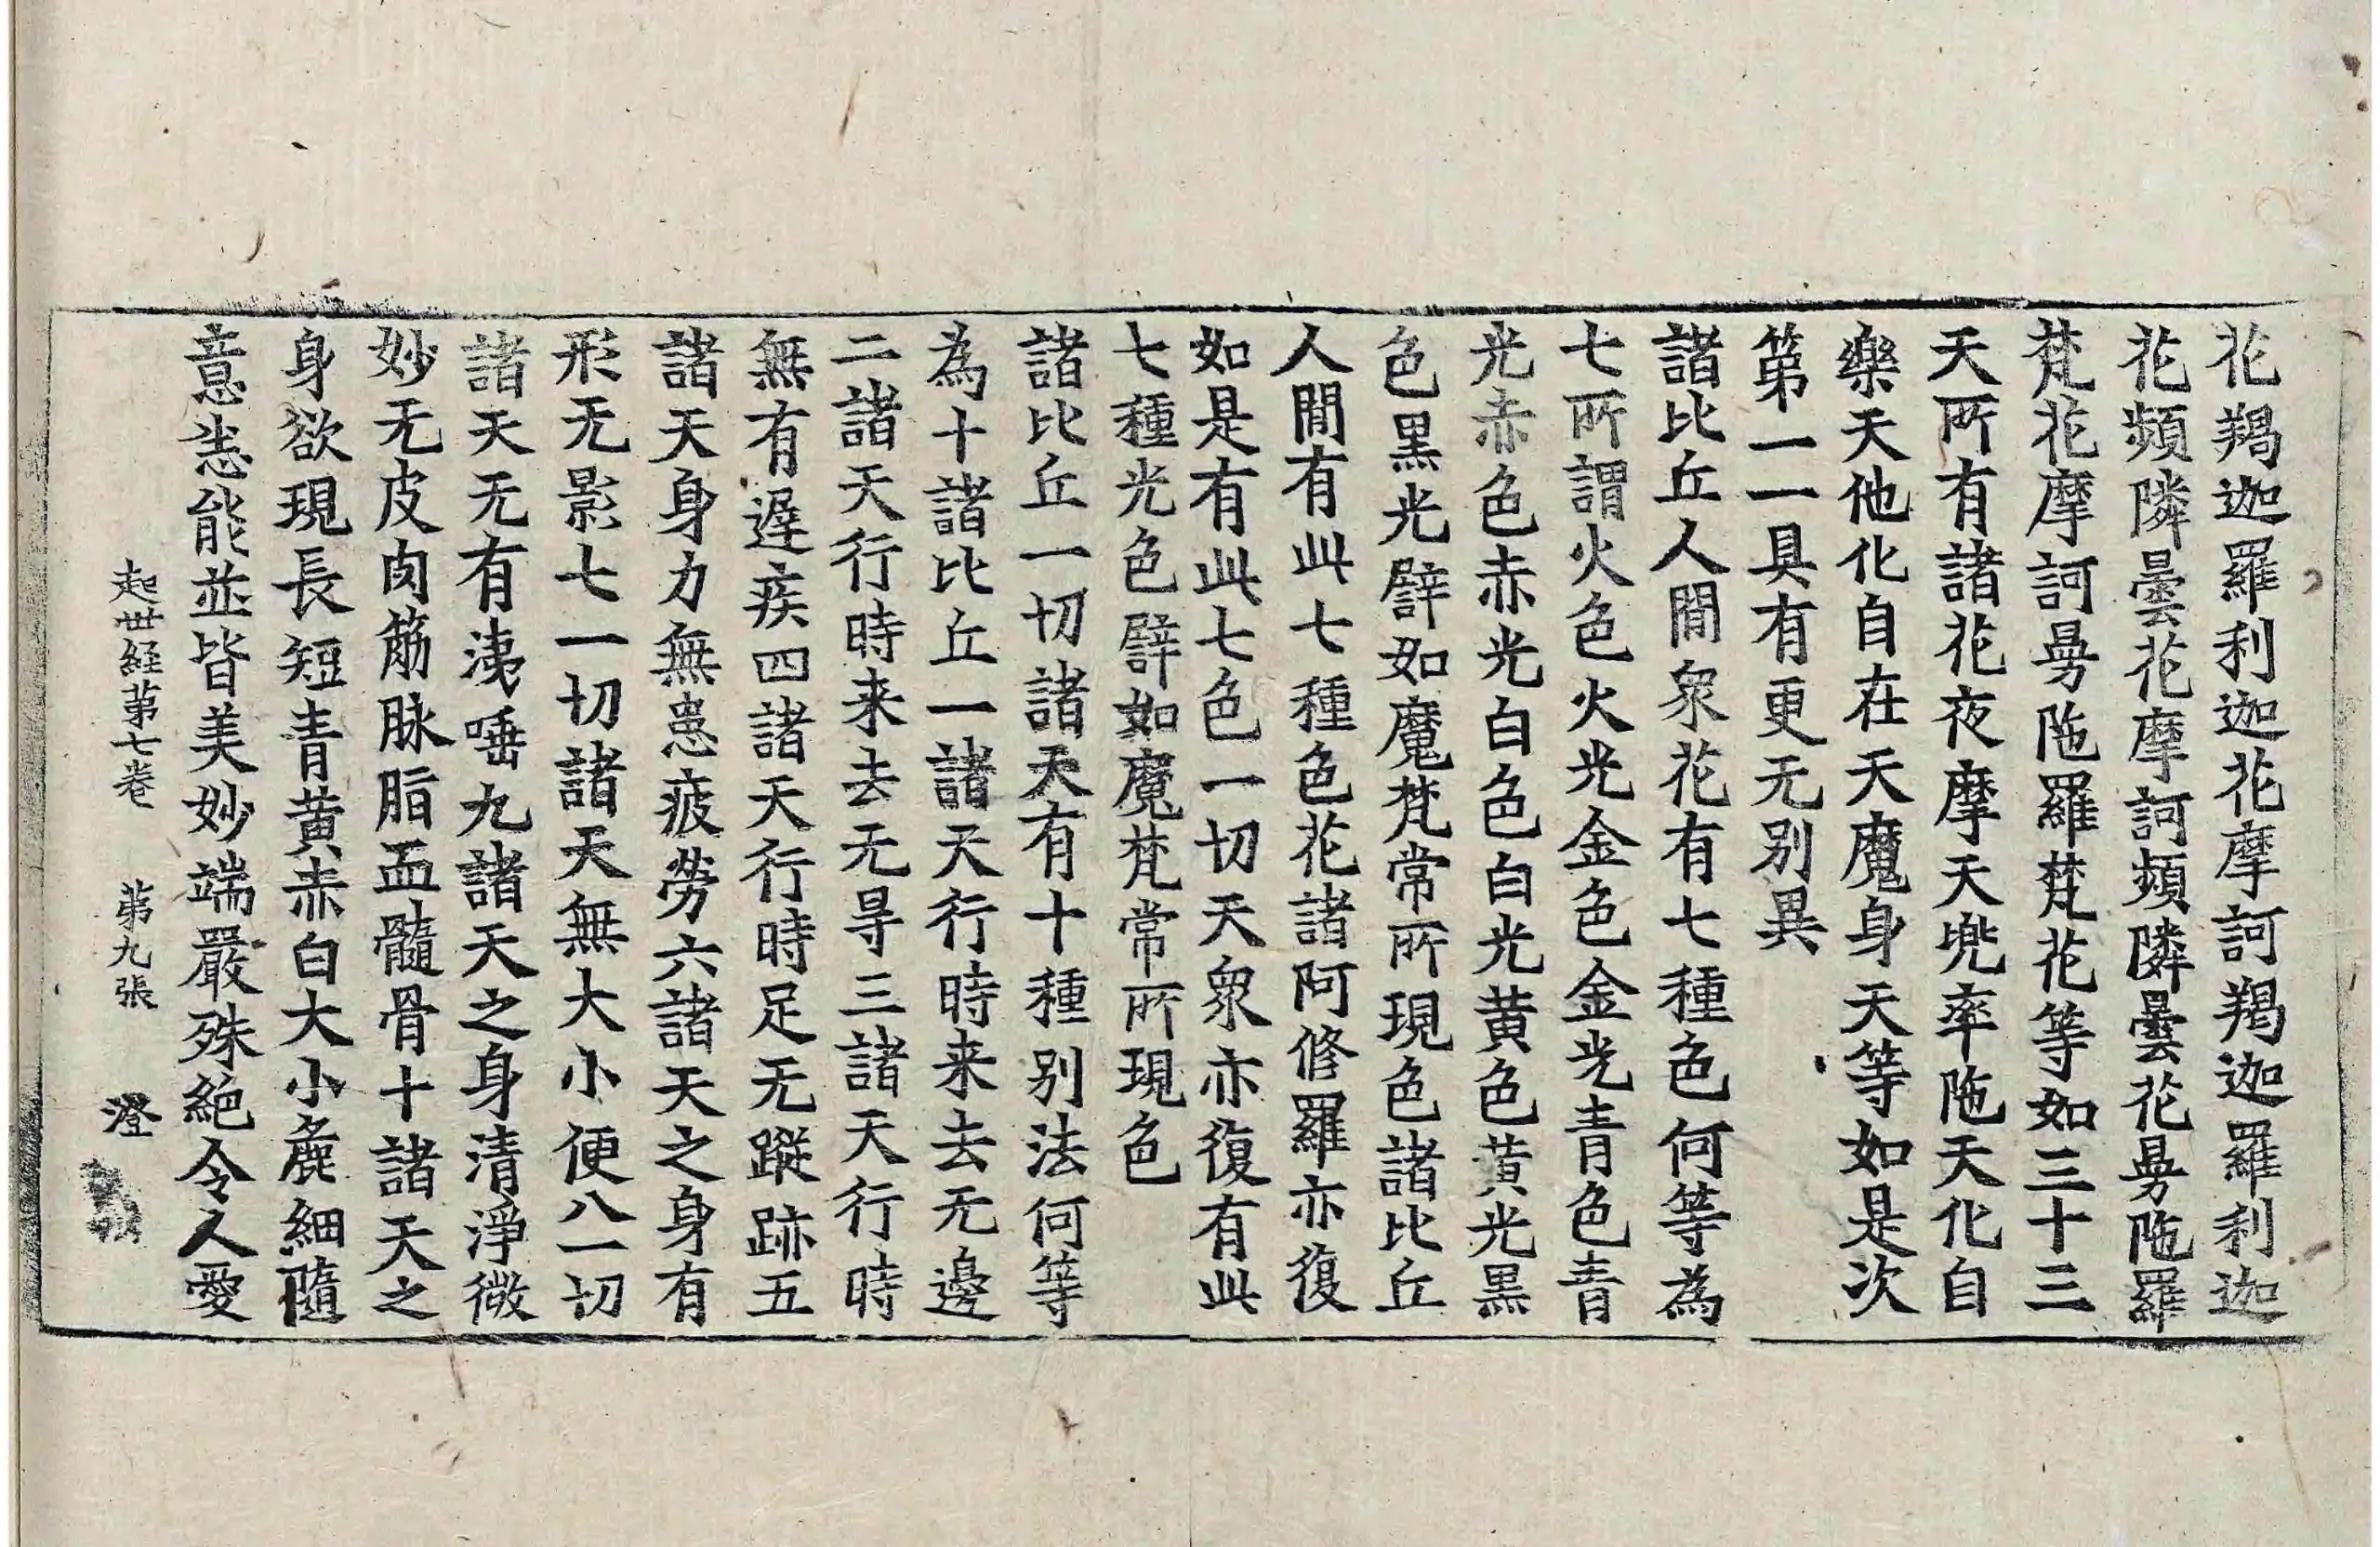 花羯迦羅利迦花摩訶羯迦羅利迦
花頻隣曇花摩訶頻隣曇花曼陁羅
梵花摩訶曼陁羅梵花等如三十三
天所有諸花夜摩天兜率陁天化自
樂天他化自在天魔身天等如是次
第一一具有更无别異
諸比丘人間衆花有七種色何等為
七所謂火色火光金色金光青色青
光赤色赤光白色白光黄色黄光黒
色黒光譬如魔梵常所現色諸比丘
人間有此七種色花諸阿修羅亦復
如是有此七色一切天衆亦復有此
七種光色譬如魔梵常所現色
諸比丘一切諸天有十種别法何等
為十諸比丘一諸天行時来去无邊
二諸天行時来去无㝵三諸天行時
無有遅疾四諸天行時足无蹤跡五
諸天身力無患疲勞六諸天之身有
形无影七一切諸天無大小便八一切
諸天无有洟唾九諸天之身清淨微
妙无皮肉筋脉脂血髓骨十諸天之
身欲現長短青黄赤白大小麁細隨
意悉能並皆美妙端嚴殊絶令人愛
起世経苐七卷 苐九張 澄